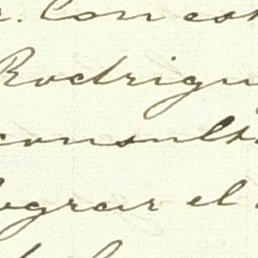 . Con es
Rodrigu
consult
ograr el